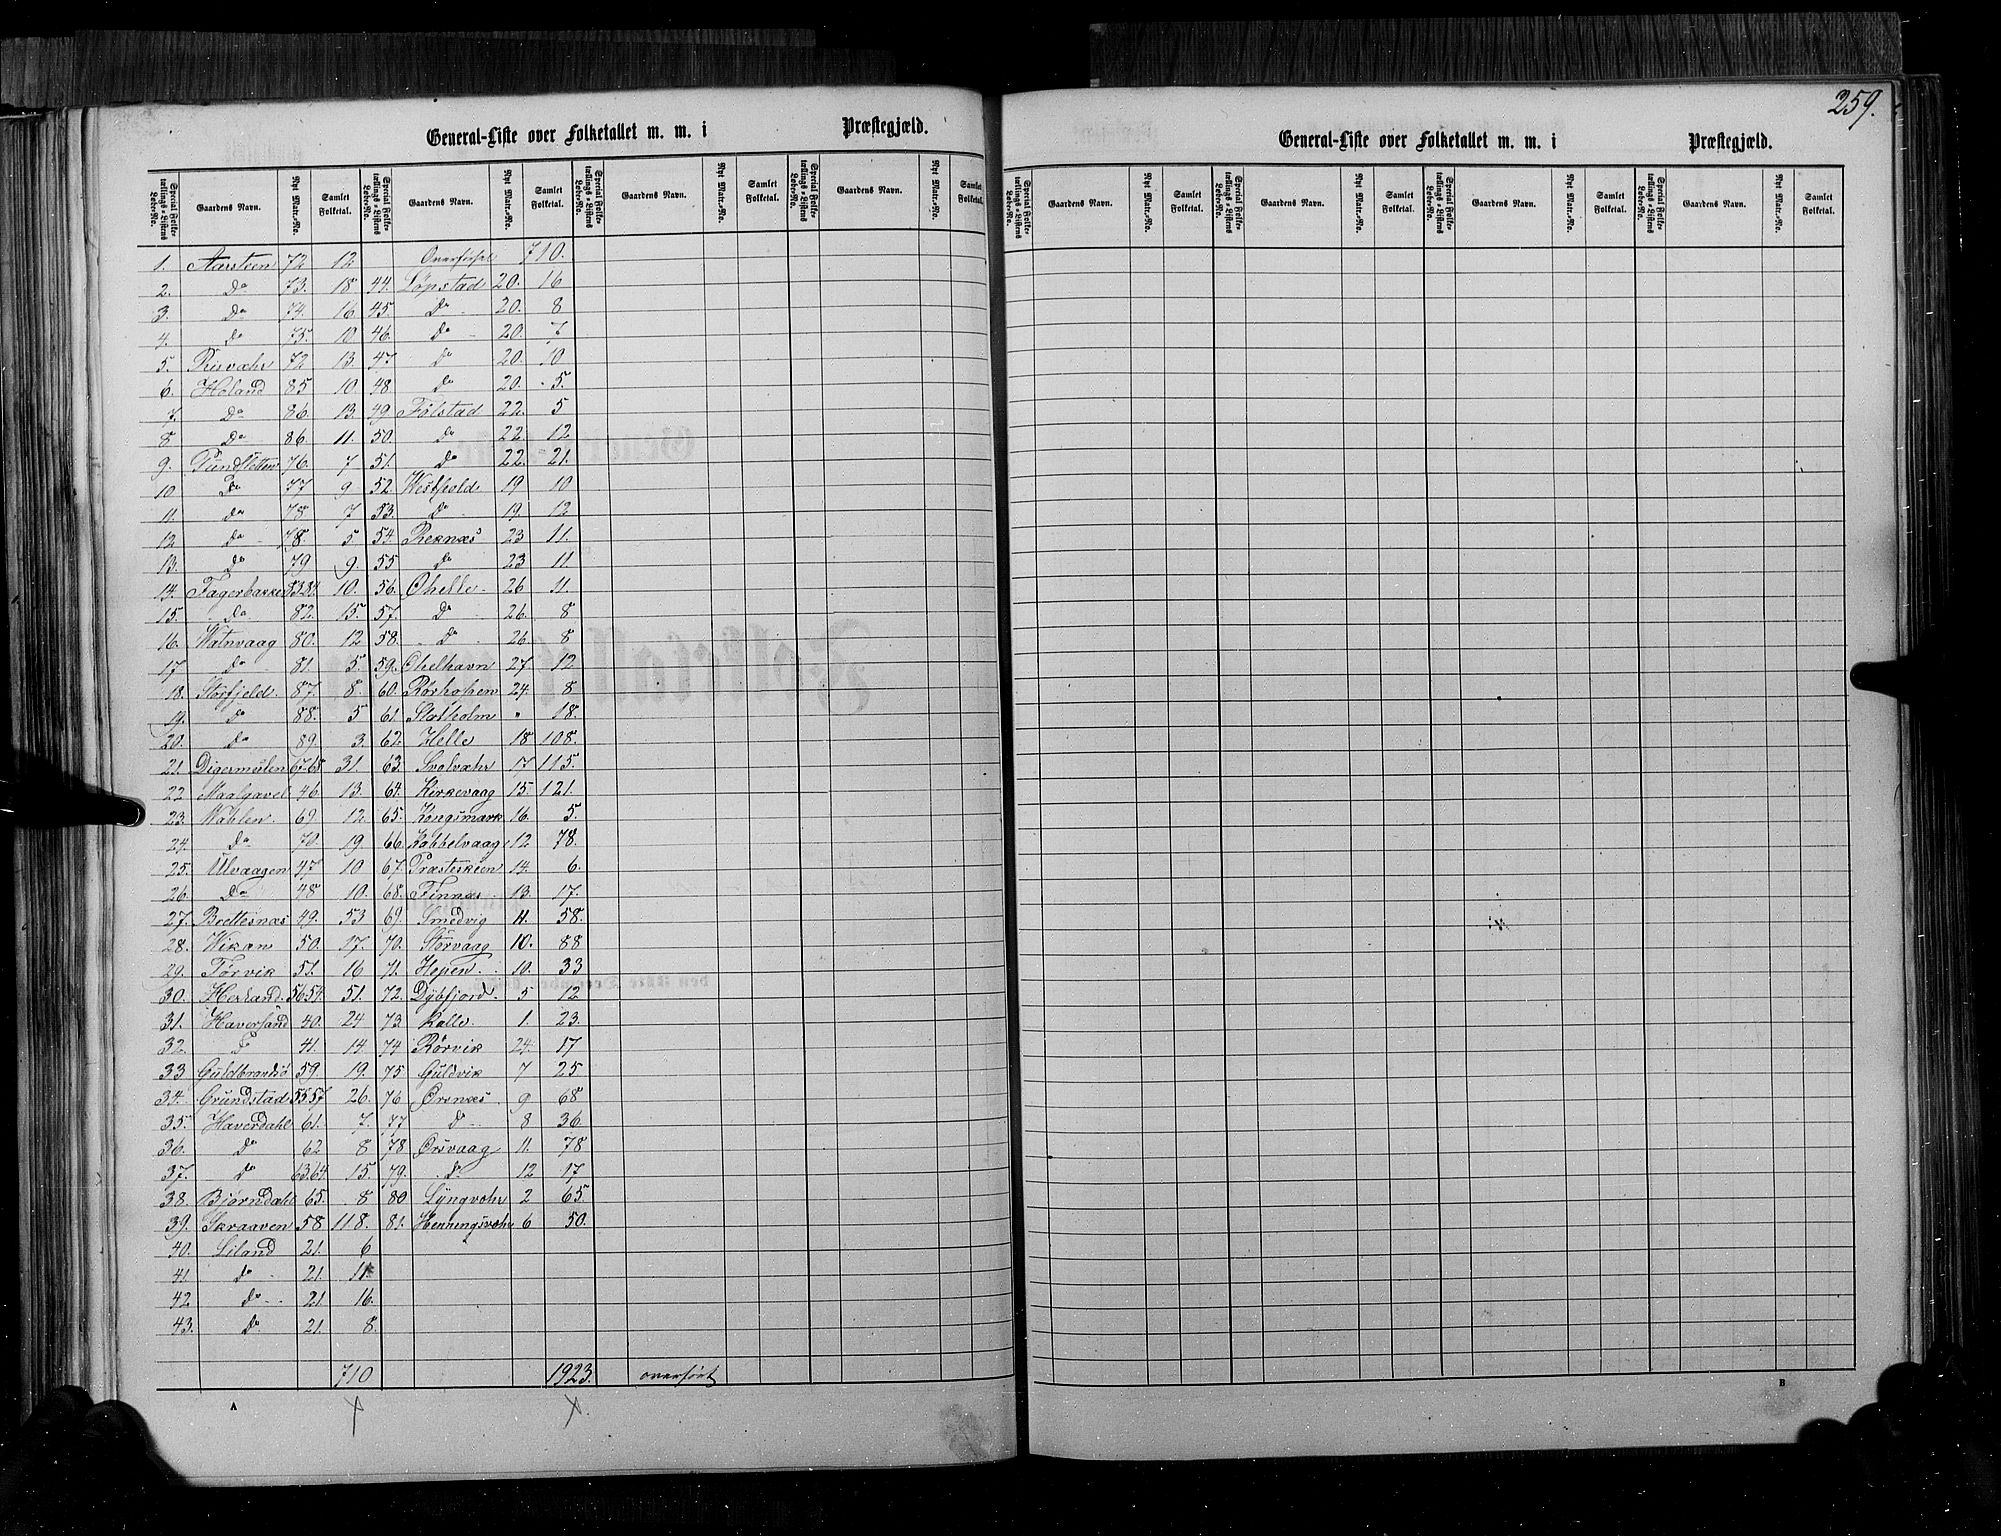 259.
General-Liste over Folketallet m. m. i Præstegjæld.
General-Liste over Folketallet m. m. i Præstegjæld.
Special Folketællings-Listens Løbe-No. Gaardens Navn. Nyt Matr.-No. Samlet Folketal. Special Folketællings-Listens Løbe-No. Gaardens Navn. Nyt Matr.-No. Samlet Folketal. Special Folketællings-Listens Løbe-No. Gaardens Navn. Nyt Matr.-No. Samlet Folketal. Special Folketællings-Listens Løbe-No. Gaardens Navn. Nyt Matr.-No. Samlet Folketal.
Special Folketællings-Listens Løbe-No. Gaardens Navn. Nyt Matr.-No. Samlet Folketal. Special Folketællings-Listens Løbe-No. Gaardens Navn. Nyt Matr.-No. Samlet Folketal. Special Folketællings-Listens Løbe-No. Gaardens Navn. Nyt Matr.-No. Samlet Folketal. Special Folketællings-Listens Løbe-No. Gaardens Navn. Nyt Matr.-No. Samlet Folketal.
1. Aarsteen 72 12 710.
2. Do 73. 18 44. Løpstad 20. 16
3. Do 74. 16 45. Do 20. 8
4. Do 75. 10 46. Do 20. 7
5. Risvæhr 72 13. 47 Do 20. 10
6. Holand 85 10 48 Do 20. 5.
7. Do 86. 13. 49 Følstad 22. 5
8 Do 86. 11. 50. Do 22. 12
9. 76. 7 51. Do 22. 21.
10 Do 77 9 52. Westpold 19 10
11. Do 78. 7 53. Do 19. 12
12 Do 78. 5 54. Reknæs 23 11.
13. Do 79 9. 55 Do 23 11
14. Fagerbakke 10. 56. Ohelle 26 11.
15. Do 82. 15. 57. Do 26. 8
16. Watnvaag 80. 12 58. Do 26. 8
17 Do 81. 5. 59. Ohelhavn 27 12
18. Storfjeld 87. 8. 60. Rørhopen 24. 8
19. Do 88. 5 61. Skotholm " 18.
20. Do 89. 3. 62. Helle 18 108.
21. Digermulen 67-68 31. 63. Svolvæhr 17 115.
22 Maalgavel 46 13. 64. Kirkevaag 15. 121.
23. Wahlen 69 12 65. Kongsmark 16. 5.
24. Do 70. 19. 66 Kabbelvaag 12 78.
25. Ulvaagen 47 10 67. Præsteskeen 14. 6.
26. Do 48 10. 68. Finnæs 13 17.
27. Brettesnæs 49. 53 69. Smedvig 11. 58.
28. Wikan 50. 17. 70. Storvaag 10. 88
29. Torvik 51. 16 71. Hopen. 10. 33
30. Herland. 56.54. 51. 72. Dybfjord. 5 12
31. Haversand 40. 24 73 Kalle. 1. 23.
32. Do 41. 14. 74 Rørvik 24. 17
33 Guldbrandsø 59 19. 75 Guldvik 7 25
34. Grundstad 55 57 26. 76 Ørsnæs. 9 68
35. Haverdahl 61. 7. 77 Do 8 36
36. Do 62 8 78 Ørsvaag 11. 78
37. Do 63 64 15. 79. Do 12 17
38. Bjørndahl 65. 8 80 Lyngvæhr 2 65.
39. Skraaven 58 118. 81. Henningsvæhr 6 50.
40. Liland 21. 6
41. Do 21. 11
42 Do 21 16.
43. Do 21. 8.
710 1923. overført
A
B